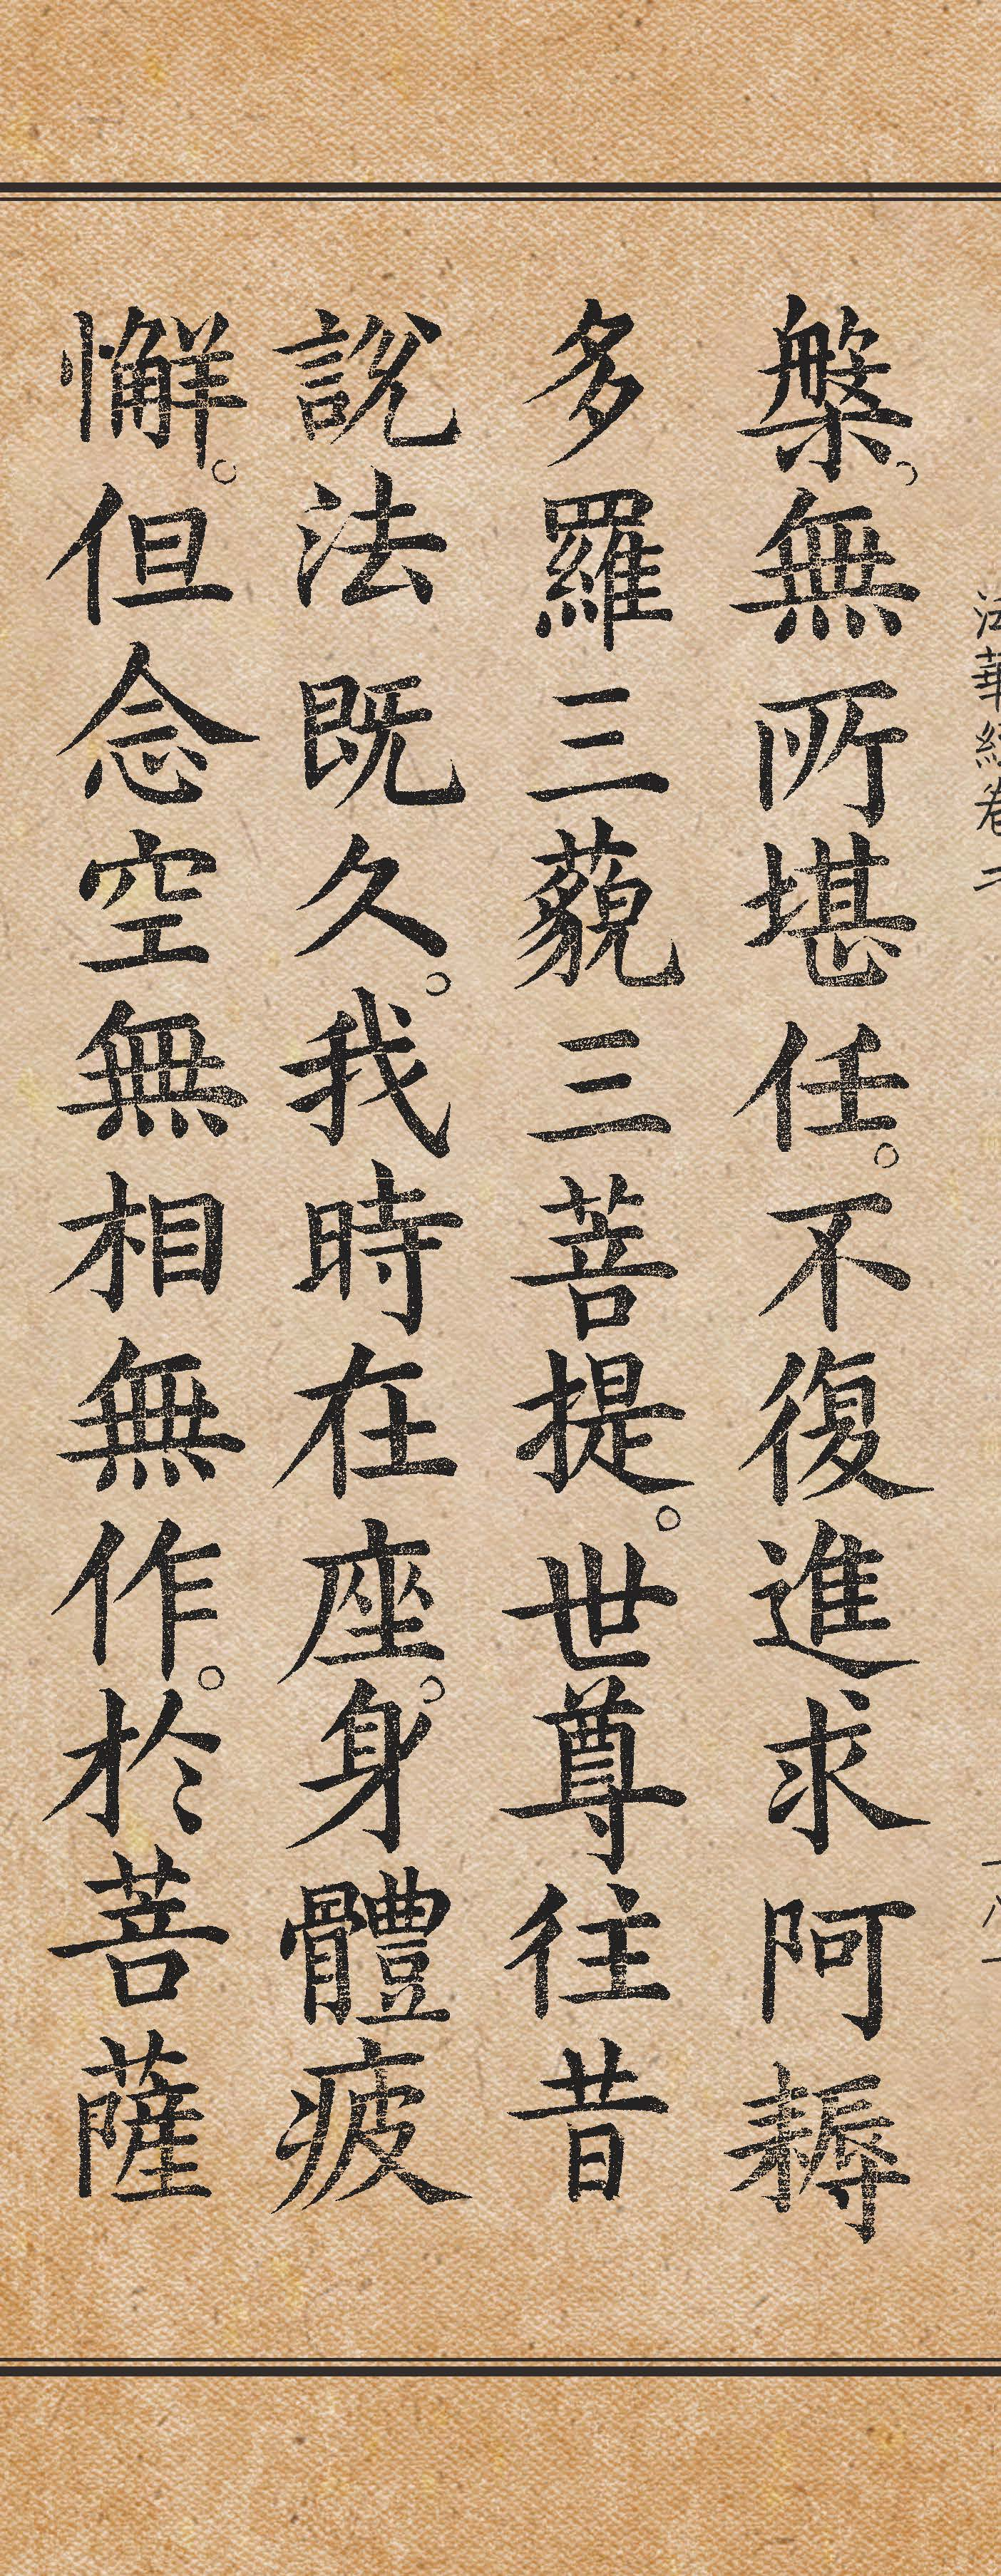 法華經卷二
槃。無所堪任。不復進求阿耨
多羅三藐三菩提。世尊往昔
說法既久。我時在座。身體疲
懈。但念空無相無作。於菩薩